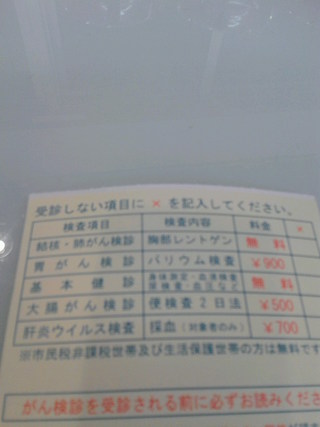 受診しない項目に × を記入してください。
検査項目 検査内容 料金 ×
結核・肺がん検診 胸部レントゲン 無料
胃がん検診 バリウム検査 ¥900
基本健診 身体測定・血液検査 尿検査・血圧など 無料
大腸がん検診 便検査2日法 ¥500
肝炎ウイルス検査 採血(対象者のみ) ¥700
※市民税非課税世帯及び生活保護世帯の方は無料です
がん検診を受診される前に必ずお読みくださ